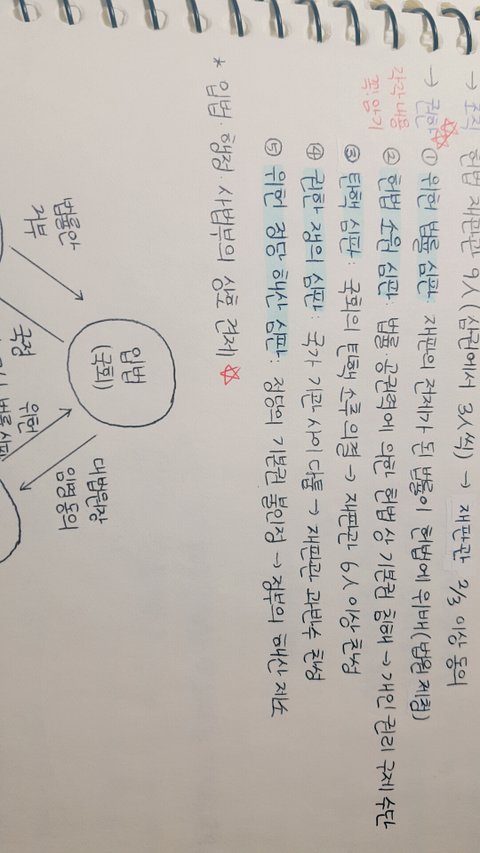 → 조직 헌법 재판관 9人 (삼권에서 3人씩) → 재판관 2/3 이상 동의
→ 권한 ① 위헌 법률 심판: 재판의 전제가 된 법률이 헌법에 위배 (법원 제청)
각각 내용
꼭! 암기
② 헌법 소원 심판: 법률·공권력에 의한 헌법 상 기본권 침해 → 개인 권리 구제 수단
③ 탄핵 심판: 국회의 탄핵 소추 의결 → 재판관 6人 이상 찬성
④ 권한 쟁의 심판: 국가 기관 사이 다툼 → 재판관 과반수 찬성
⑤ 위헌 정당 해산 심판: 정당의 기본권 불인정 → 정부의 해산 제소
* 입법·행정·사법부의 상호 견제
법률안
거부
입법
(국회)
대법원장
임명 동의
국정
위헌
법률 심판